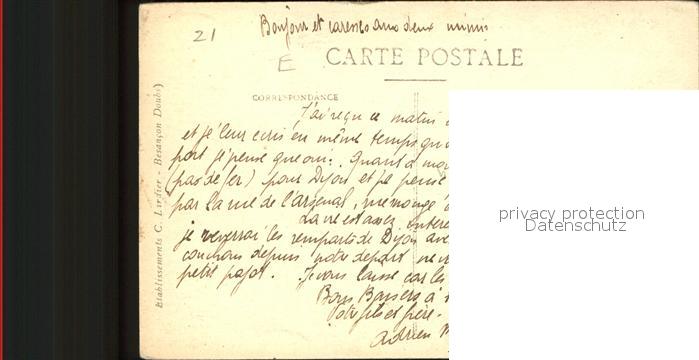 21
Bonjour et caresses aux deux mimis
E
CARTE POSTALE
CORRESPONDANCE
J'ai reçu ce matin
et je leur ecris en même temps qu'
port je pense que oui. Quant à moi
(pas de fer) pour Dijon et je pense
par la rue de l'arsenal,
La vie est assez
je reverrai les remparts de Dijon avec
depuis notre depart ne
petit Je vous laisse car les
Bons Baisers à
Votre fils et frère -
Adrien M
Etablissements C. Lardier - Besançon (Doubs)
privacy protection
Datenschutz